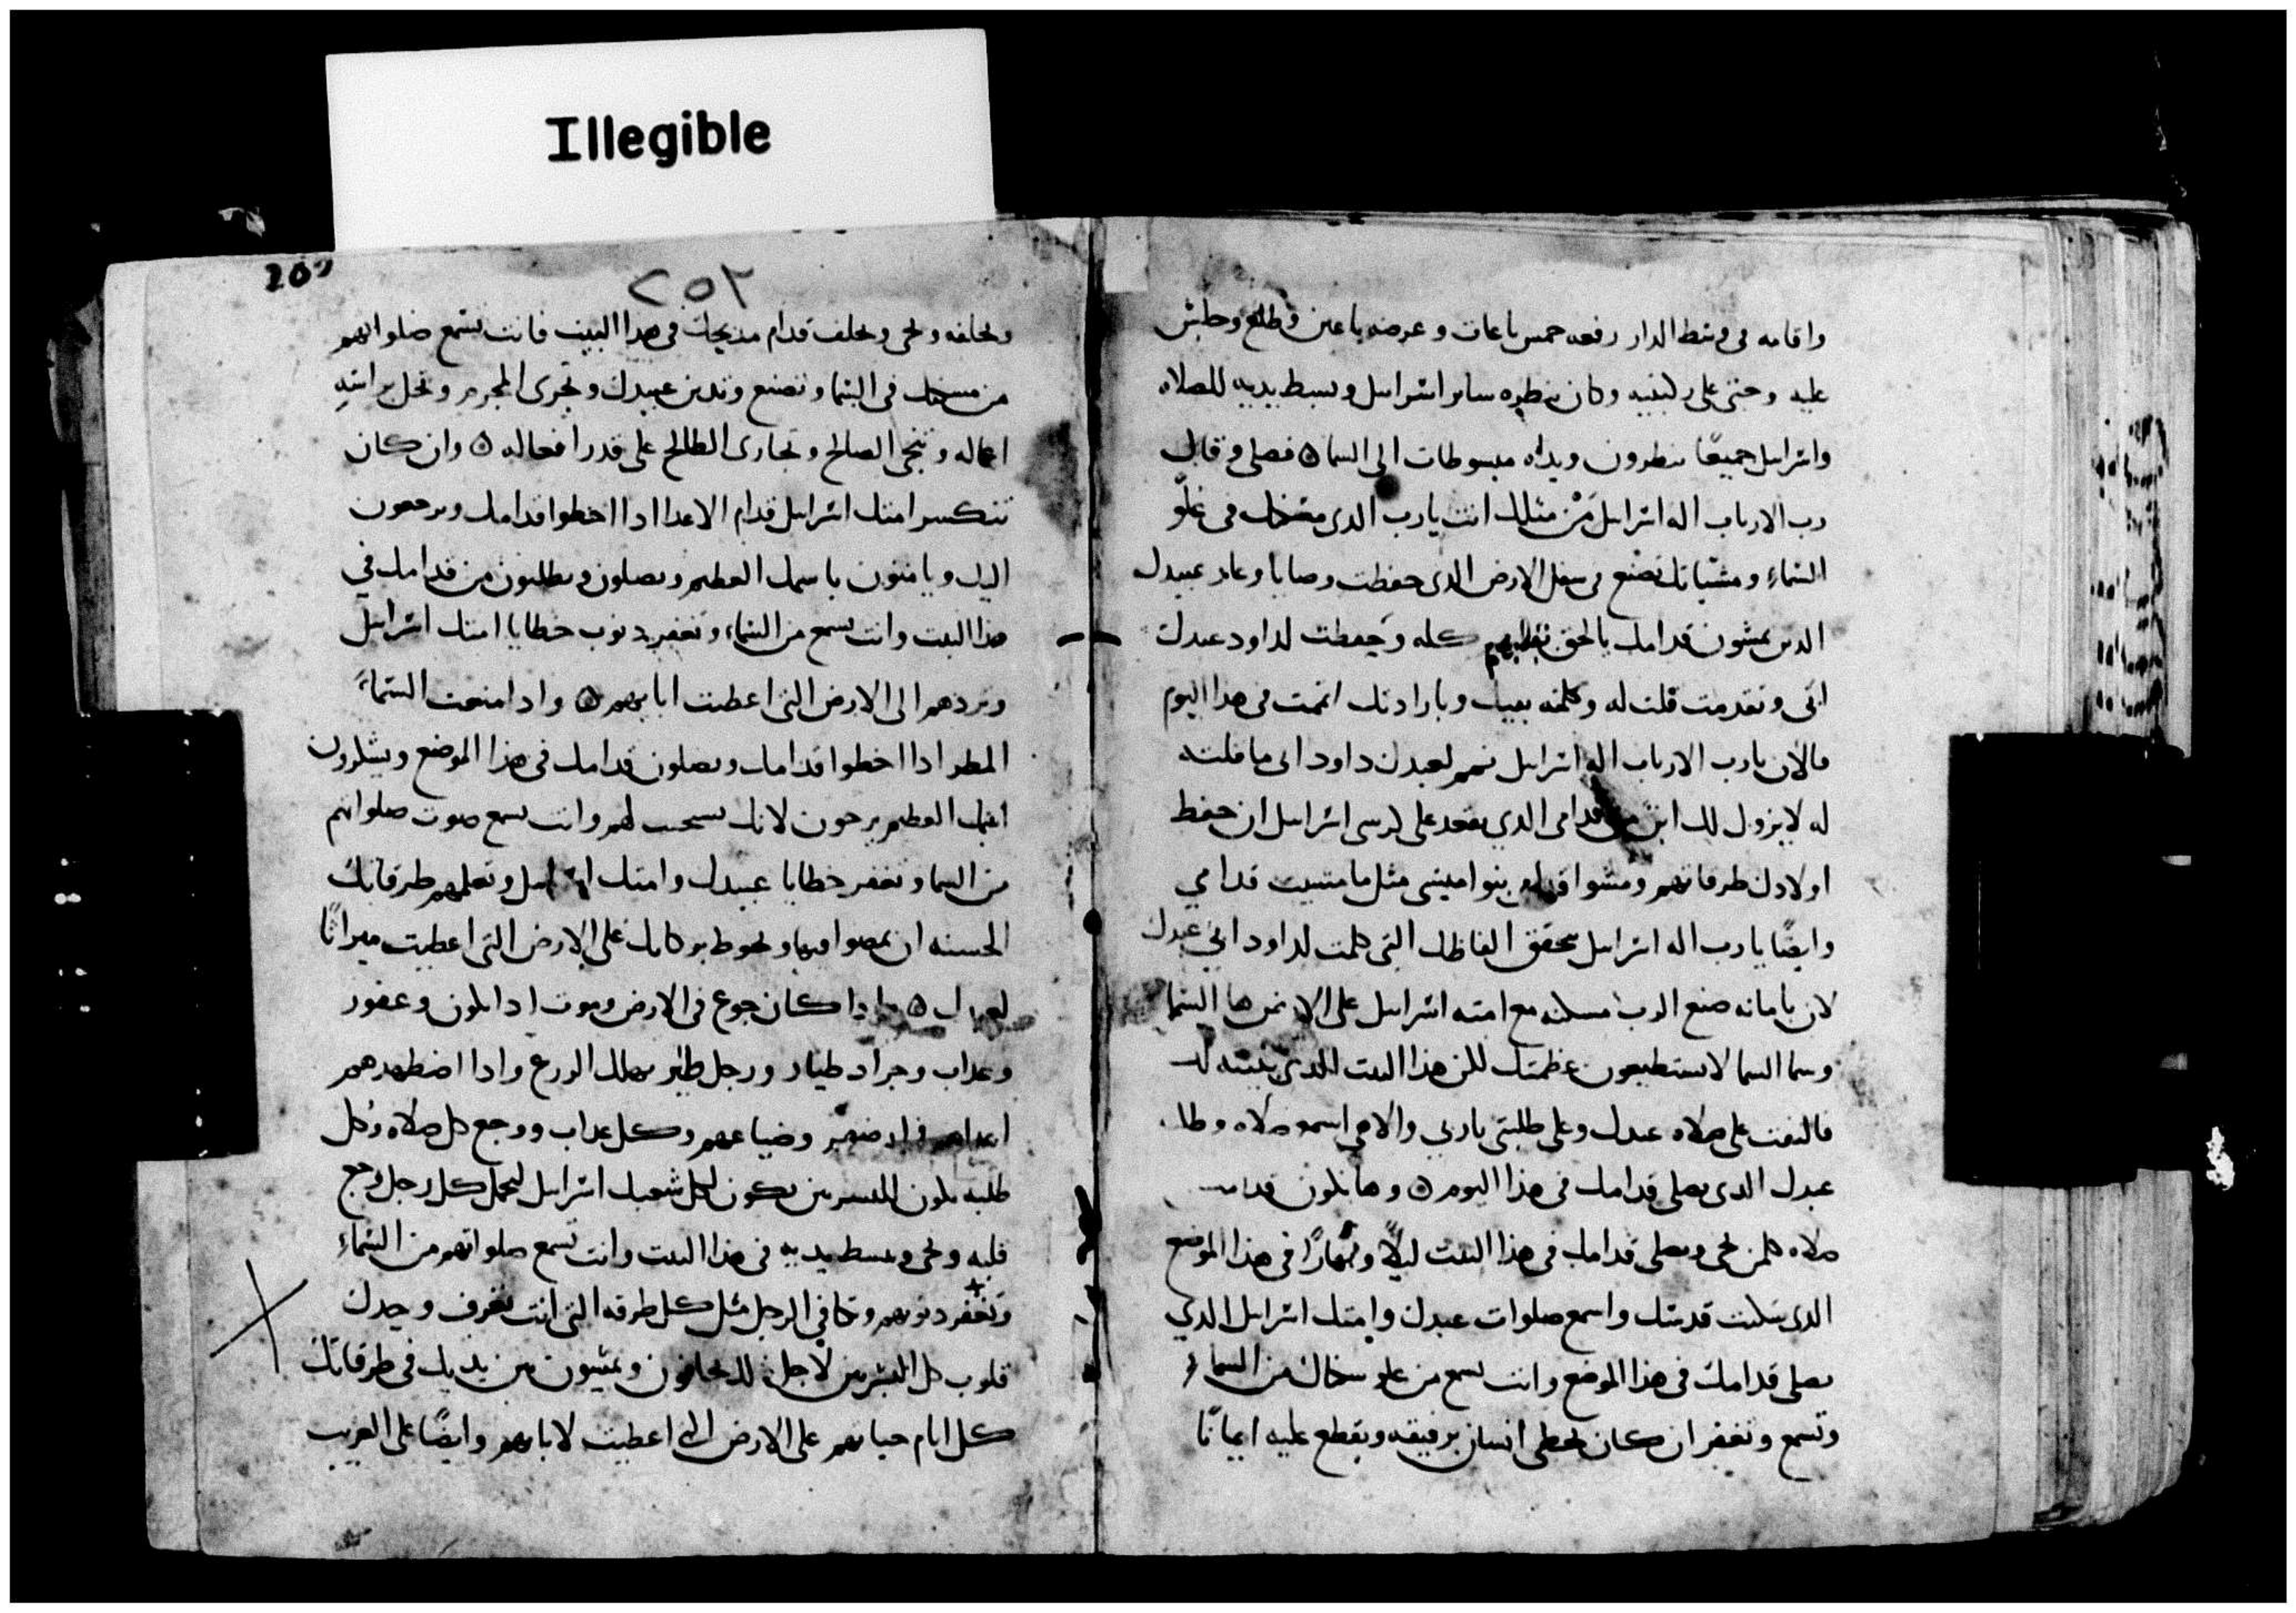 Illegible
واقامه فى وسط الدار رفعه خمس باعات و عرضه باعين وطلع وجلس
عليه وجثى على ركبتيه وكان ينطره ساير اسرايل وبسط يديه للصلاه
واسرايل جميعًا ينطرون ويداه مبسوطات الى السما ۞ فصلى وقال
رب الارباب اله اسرايل مَنْ مثلك انت يارب الدى مسكنك فى علوّ
السماءِ ومشياتك تصنع فى سفل الارض الدى حفظت وصايا وعاد عبيدك
الدين يمشون قدامك بالحق بقلبهم كله وحفطت لداود عبدك
ابى وتقدمت قلت له وكلمته بفيك وبارادتك اتممت فى هدا اليوم
فالان يارب الارباب اله اسرايل تمم لعبدك داود ابى ما قلته
له لا يزول لك ابن من قدامى الدي يقعد على كرسى اسرايل ان حفط
اولادك طرقاتهم ومشوا بنواميسى مثل ما مشيت قدامي
وايضًا يارب اله اسرايل تحقق الفاظك التى كلمت لداود ابي عبدك
لان بامانه صنع الرب مسكنه مع امته اسرايل على الارض ها السما
وسما السما لا يستطيعون عظمتك لكن هذا البيت الدى بنيته لك
فالتفت على صلاه عبدك وعلى طلبتى ياربى والاهي اسمع صلاه
عبدك الدى يصلى قدامك فى هذا اليوم ۞ وها تكون
صلاه كلمن يجى ويصلى قدامك فى هذا البيت ليلًا ونهارًا فى هدا الموضع
الدى سكنت قدسك واسمع صلوات عبدك وامتك اسرايل الدي
يصلى قدامك فى هذا الموضع وانت تسمع من علو سكناك من السماء
وتسمع وتغفر ان كان يخطى انسان برفيقه ويقطع عليه ايمانًا
202
٢٥٢
ويحلفه ويجى ويحلف قدام مدبحك فى هدا البيت فانت تسمع صلواتهم
من مسكنك فى السما وتصنع وتدين عبيدك وتجرى المجرم وتحل براسه
اعماله وتنجى الصالح وتجارى الطالح على قدر افعاله ۞ وان كان
تنكسر امتك اسرايل قدام الاعدا ادا اخطوا قدامك ويرجعون
اليك ويامنون باسمك العطيم ويصلون ويطلبون من قدامك في
هذا البيت وانت تسمع من السماء وتغفر دنوب خطايا امتك اسرايل
وتردهم الى الارض التى اعطيت ابايهم ۞ وادا منعت السماءَ
المطر ادا اخطوا قدامك ويصلون قدامك فى هذا الموضع ويشكرون
اسمك العطيم يرجون لانك تستجيب لهم وانت تسمع صوت صلواتهم
من السما وتغفر خطايا عبيدك وامتك اسرايل وتعلمهم طرقاتك
الحسنه ان يمضوا فيها وتحوط بركاتك على الارض التى اعطيت ميراثًا
۞ وادا كان جوع فى الارض وموت ادا يكون وعفور
وعداب وجراد طيار ورجل طير يهلك الزرع وادا اضطهدهم
اعداهم وضياعهم وكل عداب ووجع كل صلاه وكل
طلبه يكون للبشريين يكون لكل شعبك اسرايل ليحمل كل رجل وجع
قلبه ويجى ويبسط يديه فى هذا البيت وانت تسمع صلواتهم من السماءِ
وتغفر دنوبهم وتكافى الرجل مثل كل طرقه التى انت تعرف وحدك
قلوب كل البشريين لاجل ان يخافون ويمشيون بين يديك فى طرقاتك
كل ايام حياتهم على الارض التى اعطيت لابايهم وايضًا على الغريب